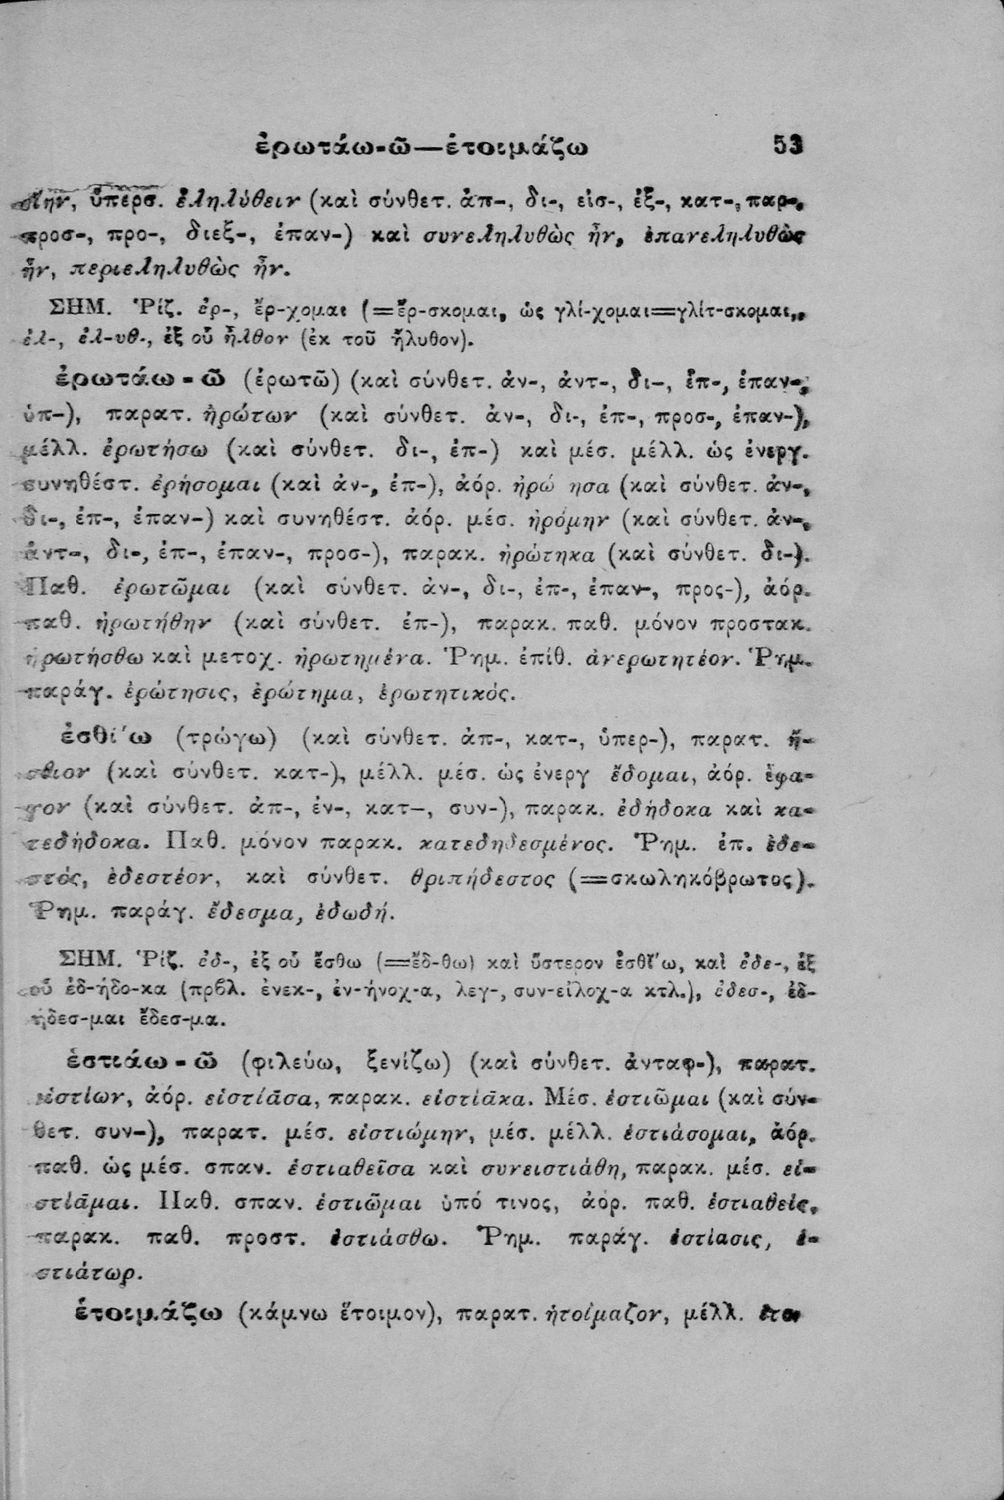 ἐρωτάω-ῶ—ἑτοιμάζω 53
ὑπερσ. ἐληλύθειν (καὶ σύνθετ. ἀπ-, δι-, εἰσ-, ἐξ-, κατ-, παρ-,
προσ-, προ-, διεξ-, ἐπαν-) καὶ συνεληλυθὼς ἦν, ἐπανεληλυθὼς
ἦν, περιεληλυθὼς ἦν.
ΣΗΜ. Ῥίζ. ἐρ-, ἔρ-χομαι (=ἔρ-σκομαι, ὡς γλί-χομαι=γλίτ-σκομαι,
ἐλ-, ἐλ-υθ-, ἐξ οὗ ἦλθον (ἐκ τοῦ ἤλυθον).
ἐρωτάω-ῶ (ἐρωτῶ) (καὶ σύνθετ. ἀν-, ἀντ-, δι-, ἐπ-, ἐπαν-,
ὑπ-), παρατ. ἠρώτων (καὶ σύνθετ. ἀν-, δι-, ἐπ-, προσ-, ἐπαν-),
μέλλ. ἐρωτήσω (καὶ σύνθετ. δι-, ἐπ-) καὶ μέσ. μέλλ. ὡς ἐνεργ.
συνηθέστ. ἐρήσομαι (καὶ ἀν-, ἐπ-), ἀόρ. ἠρώ ησα (καὶ σύνθετ. ἀν-,
δι-, ἐπ-, ἐπαν-) καὶ συνηθέστ. ἀόρ. μέσ. ἠρόμην (καὶ σύνθετ. ἀν-,
ἀντ-, δι-, ἐπ-, ἐπαν-, προσ-), παρακ. ἠρώτηκα (καὶ σύνθετ. δι-).
Παθ. ἐρωτῶμαι (καὶ σύνθετ. ἀν-, δι-, ἐπ-, ἐπαν-, προς-), ἀόρ.
παθ. ἠρωτήθην (καὶ σύνθετ. ἐπ-), παρακ. παθ. μόνον προστακ.
ἠρωτήσθω καὶ μετοχ. ἠρωτημένα. Ῥημ. ἐπίθ. ἀνερωτητέον. Ῥημ.
παράγ. ἐρώτησις, ἐρώτημα, ἐρωτητικός.
ἐσθί'ω (τρώγω) (καὶ σύνθετ. ἀπ-, κατ-, ὑπερ-), παρατ. ἤ-
σθιον (καὶ σύνθετ. κατ-), μέλλ. μέσ. ὡς ἐνεργ ἔδομαι, ἀόρ. ἔφα-
γον (καὶ σύνθετ. ἀπ-, ἐν-, κατ-, συν-), παρακ. ἐδήδοκα καὶ κα-
τεδήδοκα. Παθ. μόνον παρακ. κατεδηδεσμένος. Ῥημ. ἐπ. ἐδε-
στός, ἐδεστέον, καὶ σύνθετ. θριπήδεστος (=σκωληκόβρωτος).
Ῥημ. παράγ. ἔδεσμα, ἐδωδή.
ΣΗΜ. Ῥίζ. ἐδ-, ἐξ οὗ ἔσθω (=ἔδ-θω) καὶ ὕστερον ἐσθί'ω, καὶ ἐδε-, ἐξ
οὗ ἐδ-ήδο-κα (πρβλ. ἐνεκ-, ἐν-ήνοχ-α, λεγ-, συν-είλοχ-α κτλ.), ἐδεσ-, ἐδ-
ήδεσ-μαι ἔδεσ-μα.
ἑστιάω-ῶ (φιλεύω, ξενίζω) (καὶ σύνθετ. ἀνταφ-), παρατ.
εἱστίων, ἀόρ. εἱστίᾱσα, παρακ. εἱστίᾱκα. Μέσ. ἑστιῶμαι (καὶ σύν-
θετ. συν-), παρατ. μέσ. εἱστιώμην, μέσ. μέλλ. ἑστιάσομαι, ἀόρ.
παθ. ὡς μέσ. σπαν. ἑστιαθεῖσα καὶ συνειστιάθη, παρακ. μέσ. εἱ-
στίᾱμαι. Παθ. σπαν. ἑστιῶμαι ὑπό τινος, ἀόρ. παθ. ἑστιαθείς,
παρακ. παθ. προστ. ἑστιάσθω. Ῥημ. παράγ. ἑστίασις, ἑ-
στιάτωρ.
ἑτοιμάζω (κάμνω ἕτοιμον), παρατ. ἡτοίμαζον, μέλλ. ἑτοι